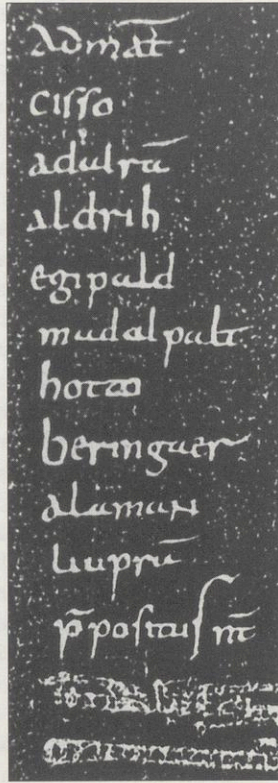 admāt̄.
cisso
adulrā
aldrih
egipald
mudalpalt
hotto
beringaer
alaman
liuprā
p̄positus m̄